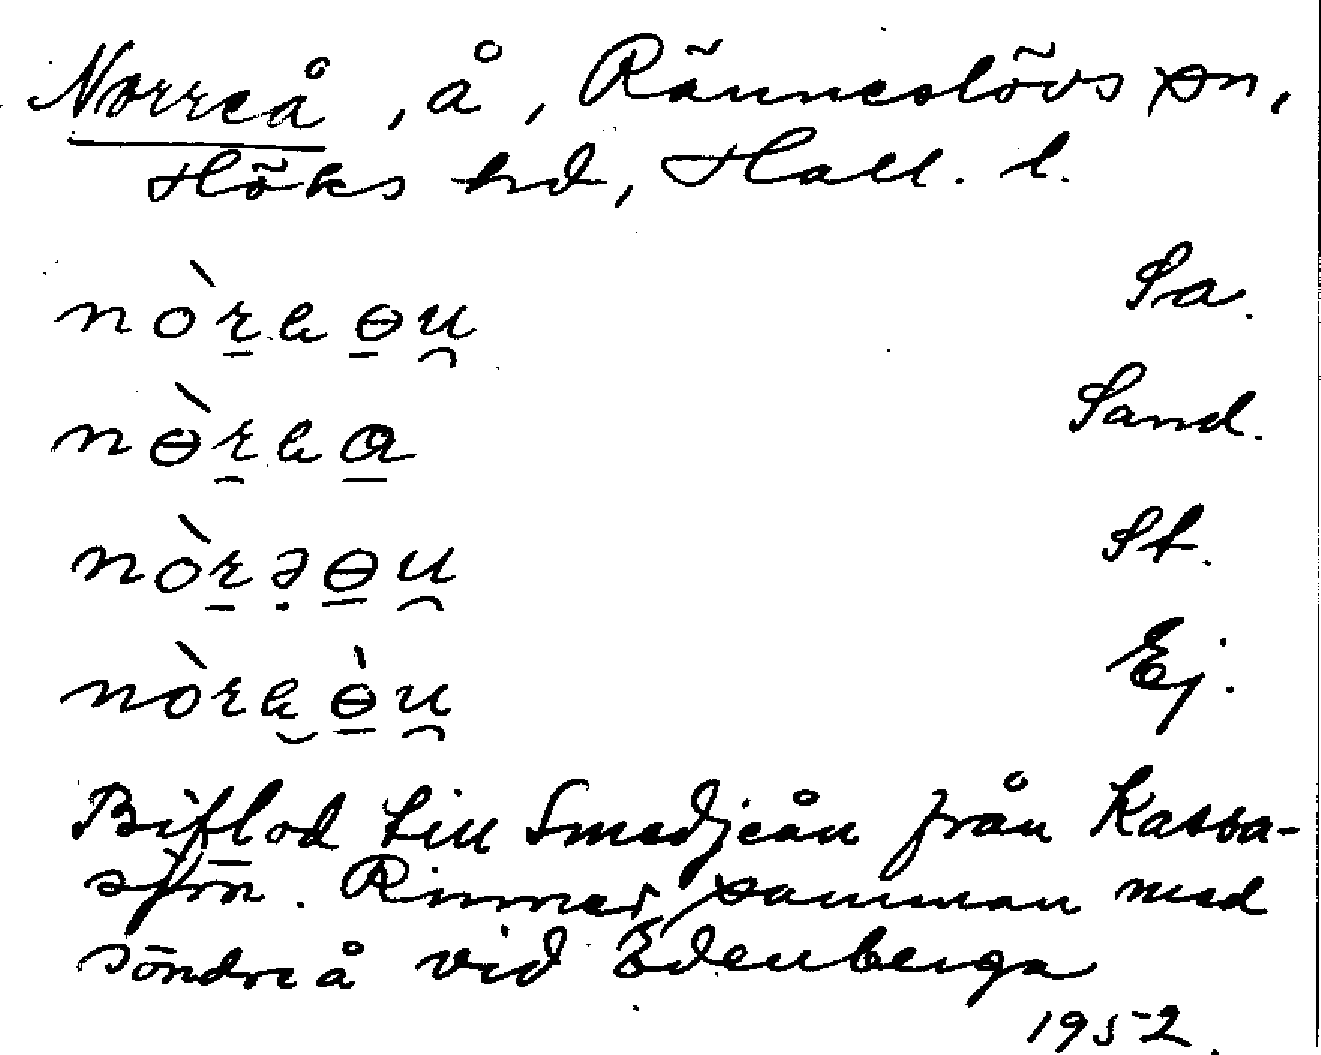 Norreå, å, Ränneslövs sn,
Höks hd, Hall. l.
nòraɵu Sa.
nɵ̀ra Sand.
nòrəɵu St.
nòraɵ̀u Ej.
Biflod till Smedjeån från
sjön. Rinner samman med
söndreå vid Edenberga
1952.